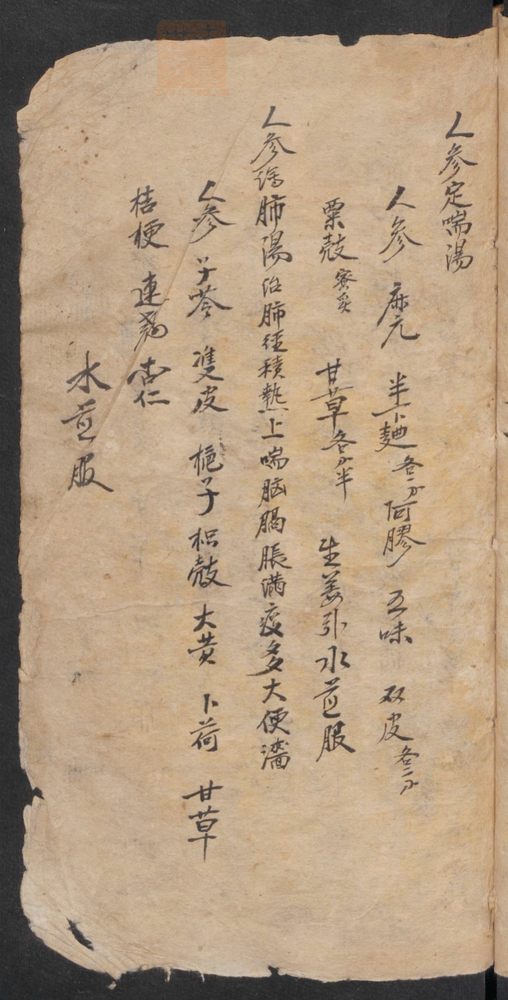 人參定喘湯
人參 麻元 半卜麯 各一分 阿膠 五味 双皮 各二分
粟殼 寮炙 甘草 各分半 生姜引水煎服
人參瀉肺湯治肺径積熱上喘胸膈脹滿痰多大便濇
人參 子苓 雙皮 梔子 枳殼 大黄 卜荷 甘草
桔梗 連翹 杏仁
水煎服